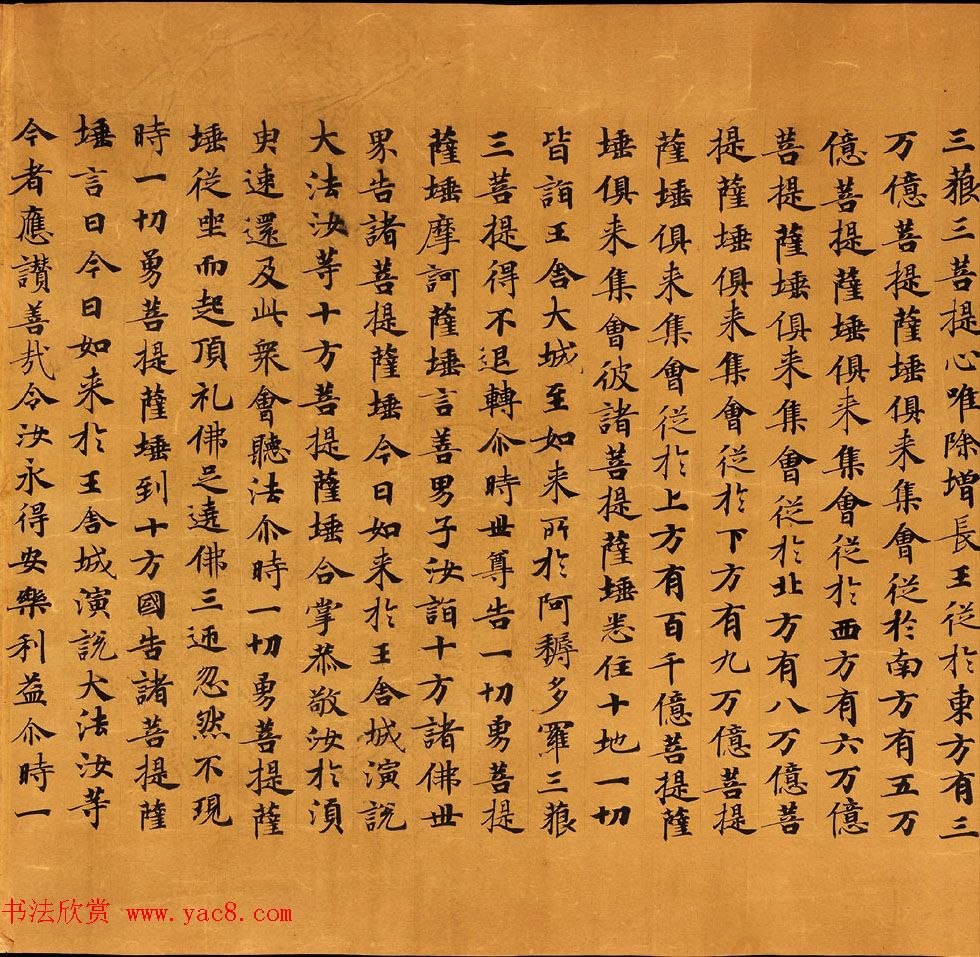 三藐三菩提心唯除增長王從於東方有三
万億菩提薩埵俱来集會從於南方有五万
億菩提薩埵俱来集會從於西方有六万億
菩提薩埵俱来集會從於北方有八万億菩
提薩埵俱来集會從於下方有九万億菩提
薩埵俱来集會從於上方有百千億菩提薩
埵俱来集會彼諸菩提薩埵悉住十地一切
皆詣王舍大城至如来所於阿耨多羅三藐
三菩提得不退轉尒時世尊告一切勇菩提
薩埵摩訶薩埵言善男子汝詣十方諸佛世
界告諸菩提薩埵今日如来於王舍城演說
大法汝等十方菩提薩埵合掌恭敬汝於湏
臾速還及此衆會聽法尒時一切勇菩提薩
埵従坐而起頂礼佛足遶佛三迊忽然不現
時一切勇菩提薩埵到十方國告諸菩提薩
埵言日今日如来於王舍城演說大法汝等
今者應讃善哉令汝永得安樂利益尒時一
书法欣赏 www.yac8.com